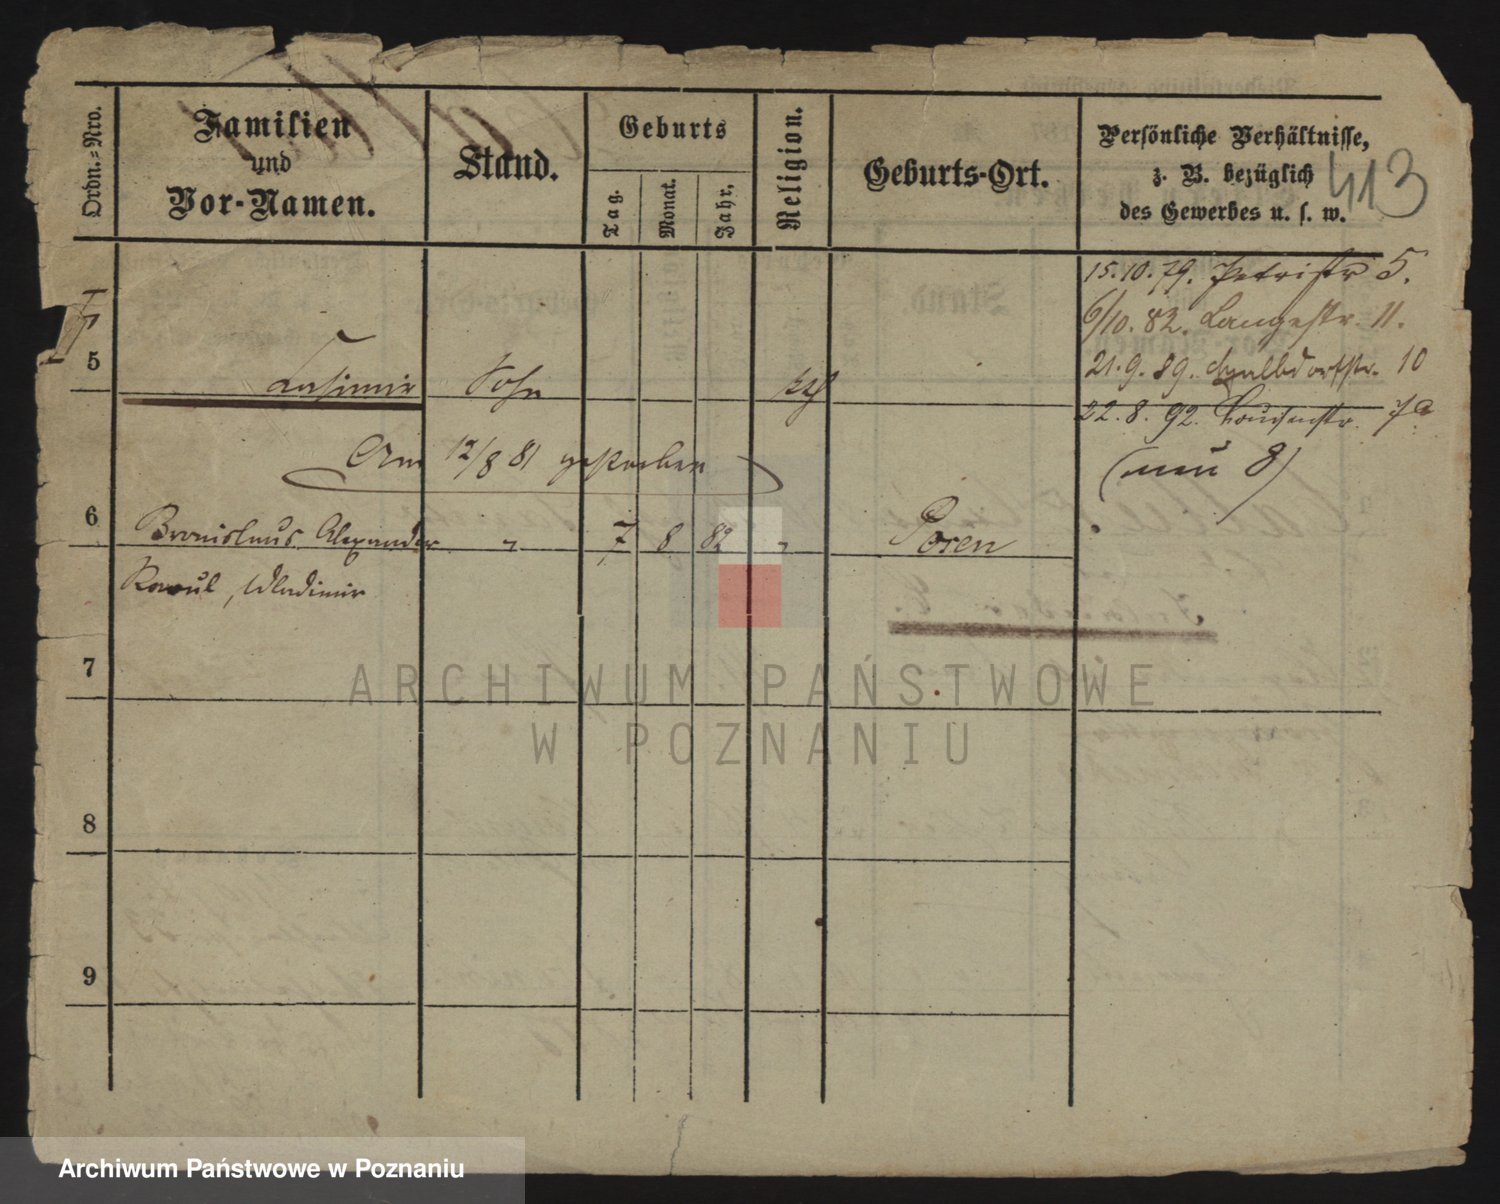 Ordn.-Nro.
Familien
und
Vor-Namen.
Stand.
Geburts
Tag.
Monat.
Jahr.
Religion.
Geburts-Ort.
Persönliche Verhältnisse,
z. B. bezüglich
des Gewerbes u. s. w.
413
15.10.79. Petristr 5.
6/10. 82. Langestr. 11.
21.9.89. 10
22.8.92. 7a
(neu 8)
†
5
Casimir Sohn kth
Am 12/8 81 gestorben
6
Bronislaus Alexander " 7 8 82 " Posen
Raoul, Wladimir
7
8
9
ARCHIWUM PAŃSTWOWE
W POZNANIU
Archiwum Państwowe w Poznaniu